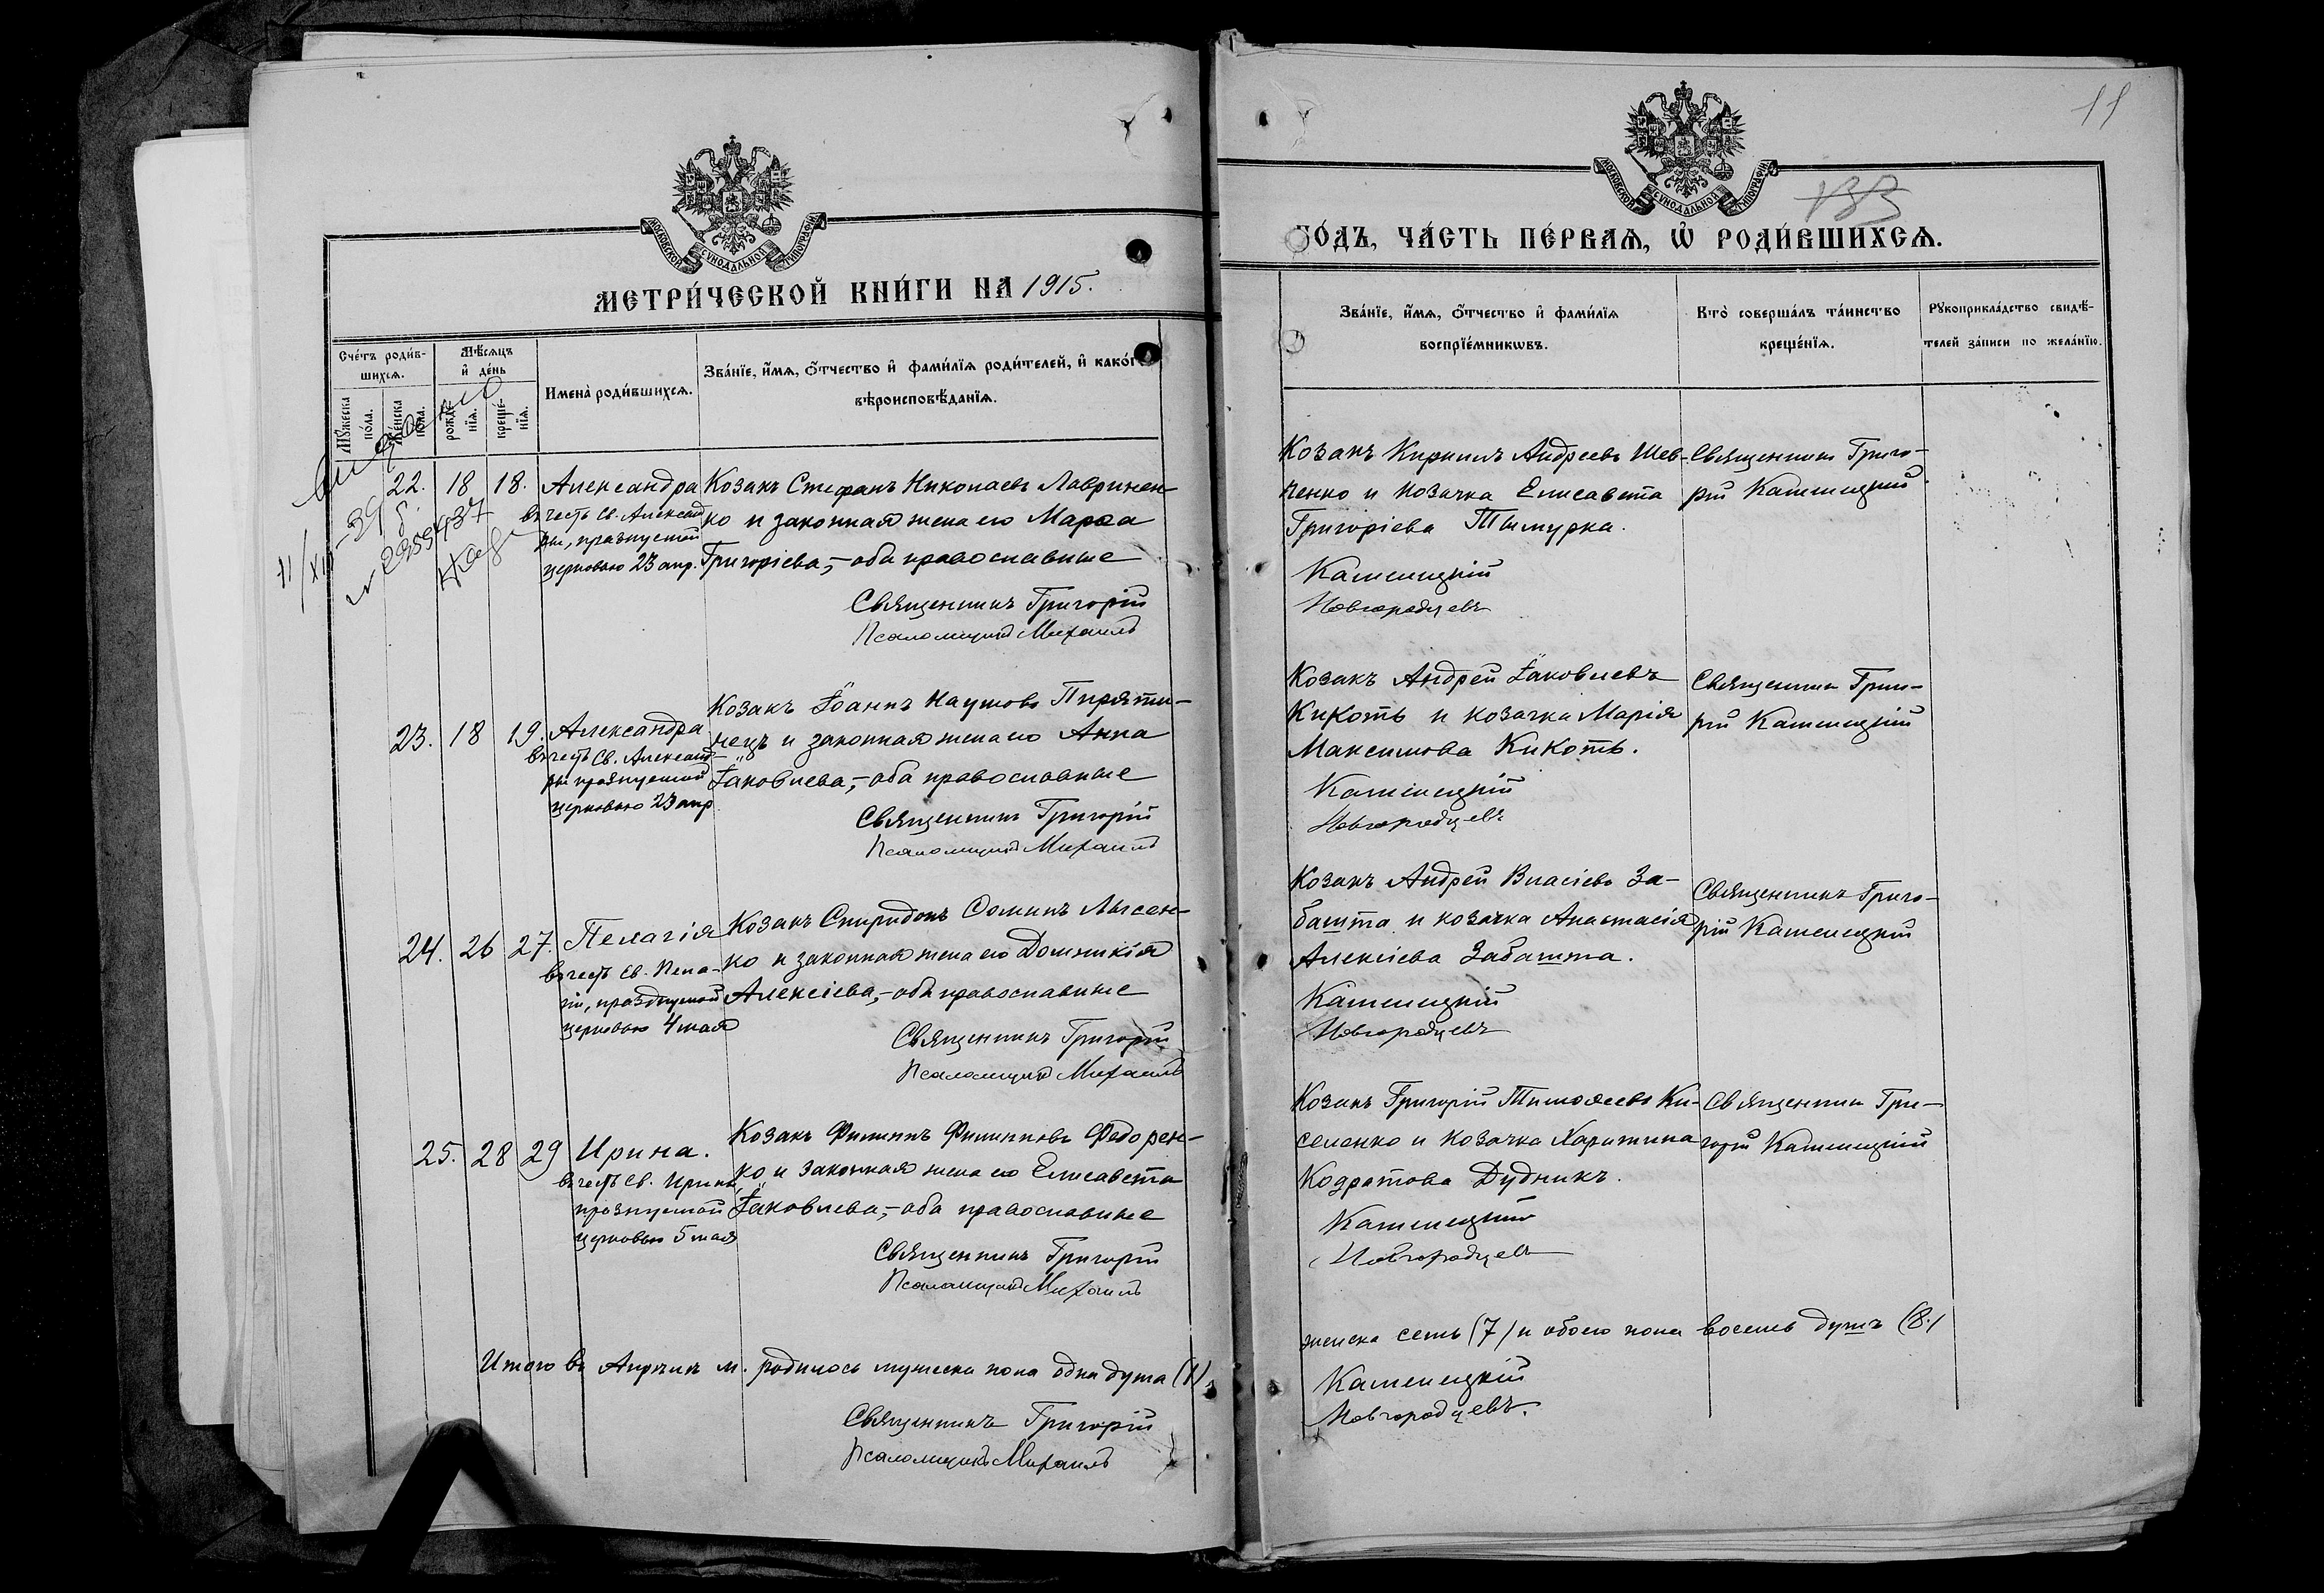 МОСКОВСКОЙ СУНОДАЛЬНОЙ ТИПОГРАФІИ
МЕТРИ́ЧЕСКОЙ КНИ́ГИ НА 1915.
Сче́тъ роди́в-
шихсѧ.
Мѣ́сѧцъ
и҆ де́нь
Мꙋ́жеска
по́ла.
Же́нска
по́ла.
рожде́-
нїѧ.
креще́-
нїѧ.
И҆мена̀ роди́вшихсѧ.
Зва́нїе, и҆́мѧ, ѻ҆́тчество и҆ фами́лїѧ роди́телей, и҆ како́гѡ
вѣроисповѣ́данїѧ.
11/XII-39
№ 2359437
22. 18 18. Александра
въ честь св. Александ-
ры, празнуемой
церковью 23 апр.
Козакъ Стефанъ Николаевъ Лавринен-
ко и законная жена его Марѳа
Григоріева,- оба православные
Священникъ Григорій
Псаломщикъ Михаилъ
23. 18 19. Александра
въ честь св. Александ-
ры празнуемой
церковью 23 апр
Козакъ Іоаннъ Наумовъ Пиряти-
нецъ и законная жена его Анна
Іаковлева,- оба православные
Священникъ Григорій
Псаломщикъ Михаилъ
24. 26 27. Пелагія
въ честь св. Пела-
гіи, празднуемой
церковью 4 мая
Козакъ Спиридонъ Ѳоминъ Лысен-
ко и законная жена его Домникія
Алексіева,- оба православные
Священникъ Григорій
Псаломщикъ Михаилъ
25. 28 29 Ирина.
въ честь св. Ирины,
празнуемой
церковью 5 мая
Козакъ Филиппъ Филипповъ Федорен-
ко и законная жена его Елисавета
Іаковлева,- оба православные
Священникъ Григорій
Псаломщикъ Михаилъ
Итого въ Апрѣлѣ м. родилось мужеска пола одна душа (1),
Священникъ Григорій
Псаломщикъ Михаилъ
11
МОСКОВСКОЙ СУНОДАЛЬНОЙ ТИПОГРАФІИ
ГО́ДЪ, ЧА́СТЬ ПЕ́РВАѦ, Ѡ҆ РОДИ́ВШИХСѦ.
Зва́нїе, и҆́мѧ, ѻ҆́тчество и҆ фами́лїѧ
воспрїе́мникѡвъ.
Кто̀ соверша́лъ та́инство
креще́нїѧ.
Рꙋкоприкла́дство свидѣ́-
телей за́писи по жела́нїю.
Козакъ Кириллъ Андреевъ Шев-
ченко и козачка Елисавета
Григоріева Тымурка.
Священникъ Григо-
рій Каменецкій
Каменецкій
Новгородцевъ
Козакъ Андрей Іаковлевъ
Кикоть и козачка Марія
Максимова Кикоть.
Священникъ Григо-
рій Каменецкій
Каменецкій
Новгородцевъ
Козакъ Андрей Власіевъ За-
башта и козачка Анастасія
Алексіева Забашта.
Священникъ Григо-
рій Каменецкій
Каменецкій
Новгородцевъ
Козакъ Григорій Тимоѳеевъ Ки-
селенко и козачка Харитина
Кодратова Дудникъ.
Священникъ Гри-
горій Каменецкій
Каменецкій
Новгородцевъ
женска семь (7) и обоего пола восемь душъ (8.)
Каменецкій
Новгородцевъ.